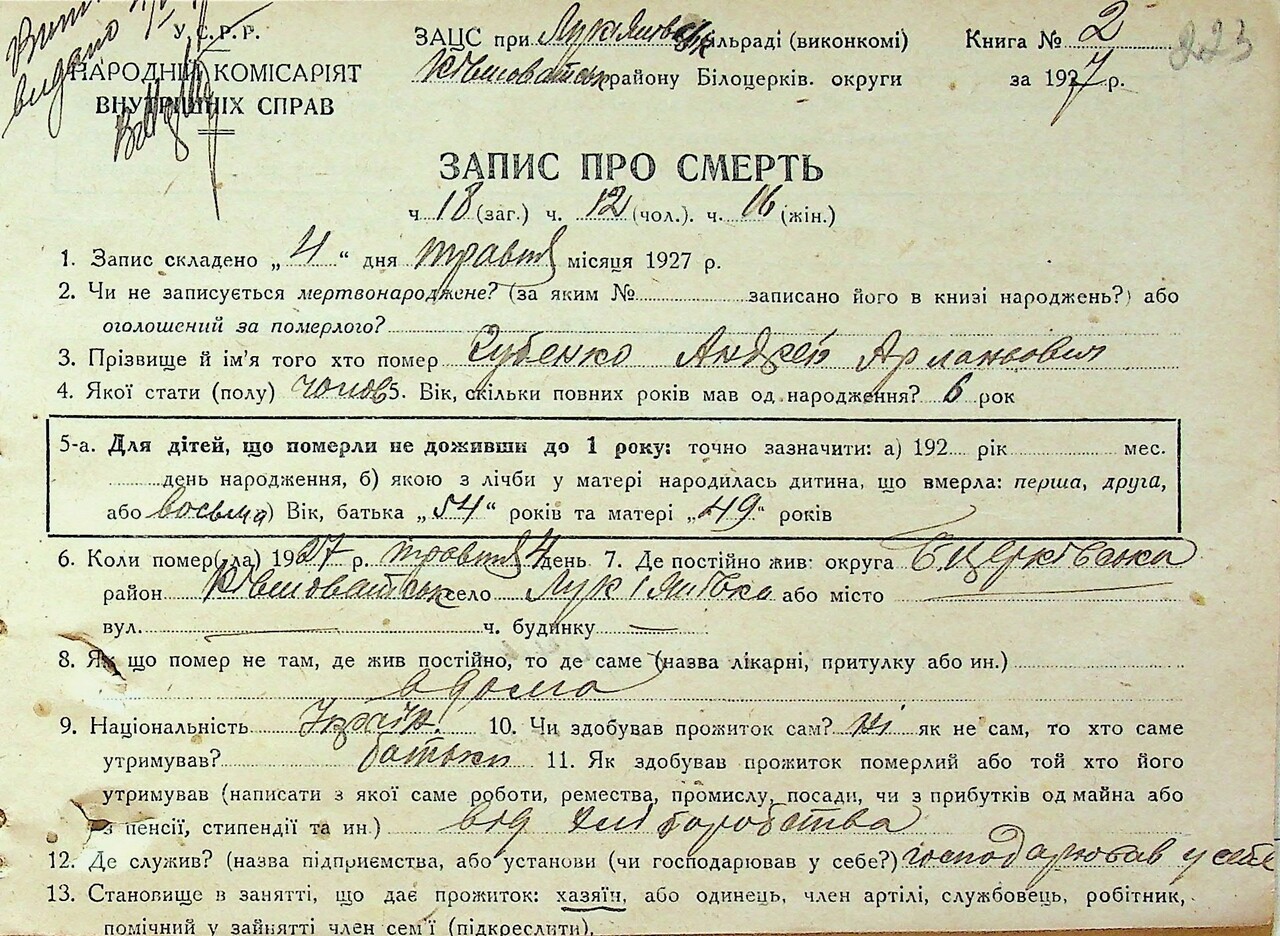 видано
У.С.Р.Р.
НАРОДНІЙ КОМІСАРІЯТ
ВНУТРІШНІХ СПРАВ
ЗАЦС при Лук'янівській сільраді (виконкомі)
Ківшоватськ району Білоцерків. округи
Книга № 2
за 1927 р.
223
ЗАПИС ПРО СМЕРТЬ
ч 18 (заг.) ч. 12 (чол.). ч. 06 (жін.)
1. Запис складено „4“ дня травня місяця 1927 р.
2. Чи не записується мертвонароджене? (за яким № записано його в книзі народжень?) або
оголошений за померлого?
3. Прізвище й ім'я того хто помер Зубенко Андрей
4. Якої стати (полу) чолов 5. Вік, скільки повних років мав од народження? 6 рок
5-а. Для дітей, що померли не доживши до 1 року: точно зазначити: а) 192 рік мес.
день народження, б) якою з лічби у матері народилась дитина, що вмерла: перша, друга,
або восьма) Вік, батька „54“ років та матері „49“ років
6. Коли помер(-ла) 1927 р. травня 4 день 7. Де постійно жив: округа Б.Церківська
район Ківшоватськ село Лук'янівка або місто
вул. ч. будинку
8. Як що помер не там, де жив постійно, то де саме (назва лікарні, притулку або ин.)
вдома
9. Національність 10. Чи здобував прожиток сам? ні як не сам, то хто саме
утримував? батьки 11. Як здобував прожиток померлий або той хто його
утримував (написати з якої саме роботи, ремества, промислу, посади, чи з прибутків од майна або
з пенсії, стипендії та ин.) від хліборобства
12. Де служив? (назва підприємства, або установи (чи господарював у себе?) господарював у себе
13. Становище в занятті, що дає прожиток: хазяїн, або одинець, член артілі, службовець, робітник,
помічний у зайнятті член сем'ї (підкреслити).